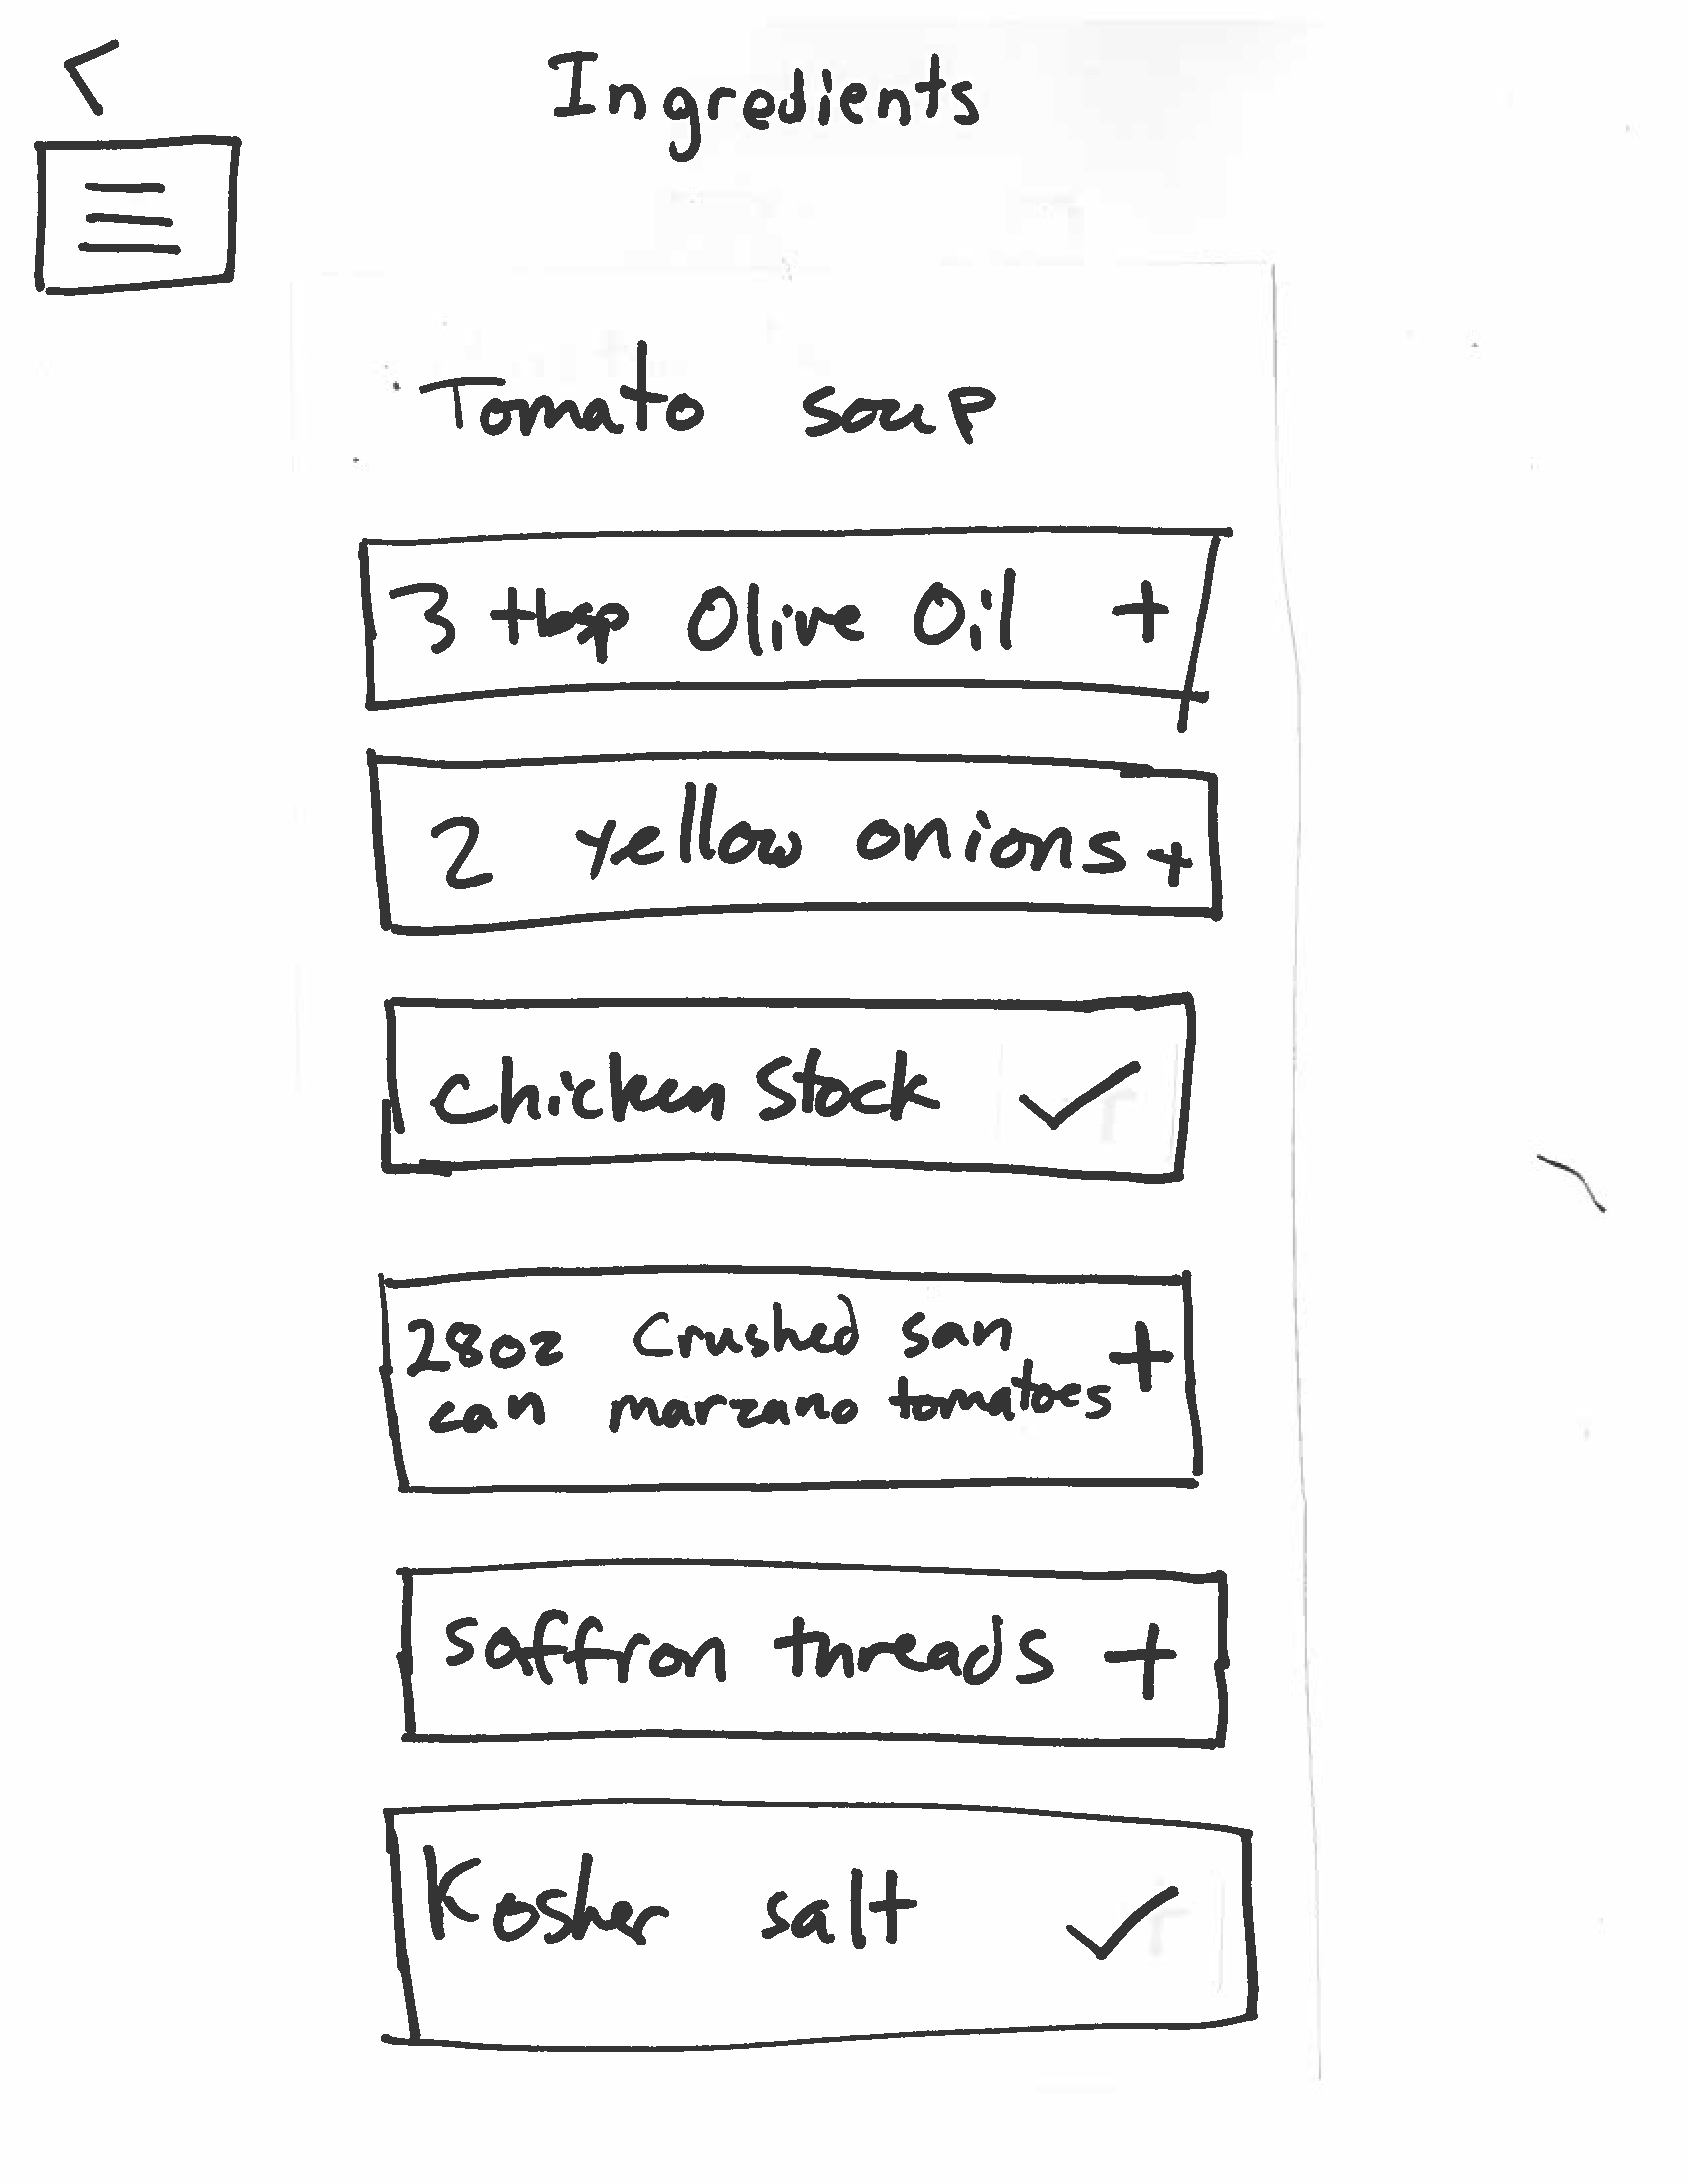 <
Ingredients
Tomato soup
3 tbsp Olive Oil +
2 yellow onions +
chicken stock ✓
28oz Crushed san +
can marzano tomatoes
saffron threads +
Kosher salt ✓